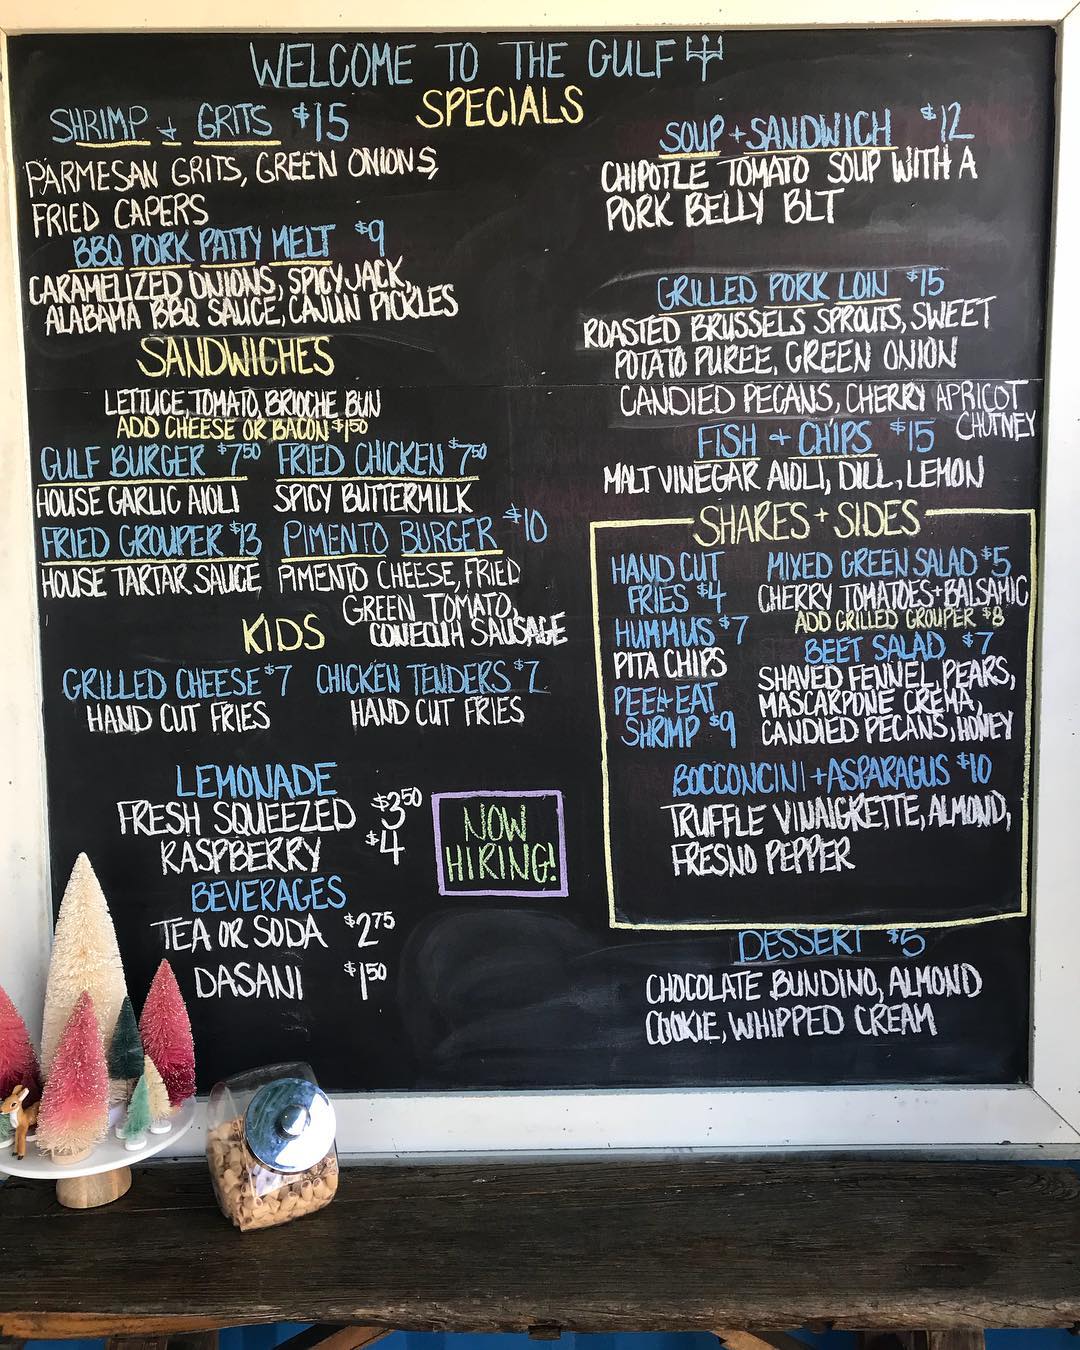 WELCOME TO THE GULF
SPECIALS
SHRIMP & GRITS $15
PARMESAN GRITS, GREEN ONIONS,
FRIED CAPERS
BBQ PORK PATTY MELT $9
CARAMELIZED ONIONS, SPICY JACK,
ALABAMA BBQ SAUCE, CAJUN PICKLES
SOUP + SANDWICH $12
CHIPOTLE TOMATO SOUP WITH A
PORK BELLY BLT
GRILLED PORK LOIN $15
ROASTED BRUSSELS SPROUTS, SWEET
POTATO PUREE, GREEN ONION
CANDIED PECANS, CHERRY APRICOT
CHUTNEY
FISH + CHIPS $15
MALT VINEGAR AIOLI, DILL, LEMON
SANDWICHES
LETTUCE, TOMATO, BRIOCHE BUN
ADD CHEESE OR BACON $1.50
GULF BURGER $7.50
HOUSE GARLIC AIOLI
FRIED CHICKEN $7.50
SPICY BUTTERMILK
FRIED GROUPER $13
HOUSE TARTAR SAUCE
PIMENTO BURGER $10
PIMENTO CHEESE, FRIED
GREEN TOMATO,
CONECUH SAUSAGE
KIDS
GRILLED CHEESE $7
HAND CUT FRIES
CHICKEN TENDERS $7
HAND CUT FRIES
LEMONADE
FRESH SQUEEZED $3.50
RASPBERRY $4
BEVERAGES
TEA OR SODA $2.75
DASANI $1.50
NOW
HIRING!
SHARES + SIDES
HAND CUT
FRIES $4
HUMMUS $7
PITA CHIPS
PEEL+EAT
SHRIMP $9
MIXED GREEN SALAD $5
CHERRY TOMATOES+BALSAMIC
ADD GRILLED GROUPER $8
BEET SALAD $7
SHAVED FENNEL, PEARS,
MASCARPONE CREMA,
CANDIED PECANS, HONEY
BOCCONCINI + ASPARAGUS $10
TRUFFLE VINAIGRETTE, ALMOND,
FRESNO PEPPER
DESSERT $5
CHOCOLATE BUNDINO, ALMOND
COOKIE, WHIPPED CREAM